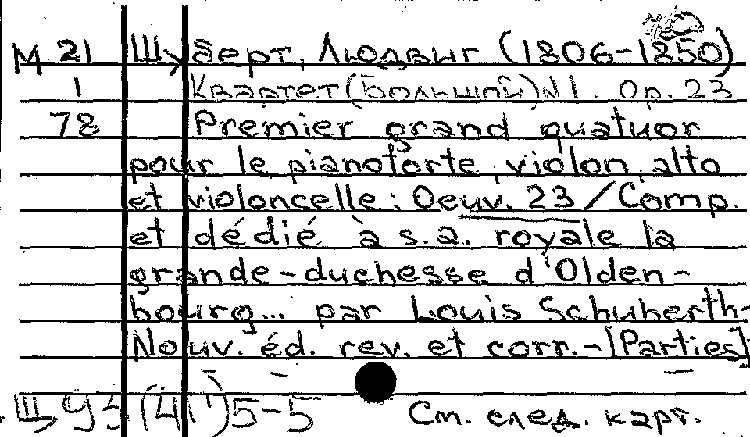 М 21 Шуберт, Людвиг (1806-1850)
1 Квартет (Большой) N1. Op. 23
78 Premier grand quatuor
pour le pianoforte, violon, alto
et violoncelle : Oeuv. 23 / Comp.
et dédié à s.a. royale la
grande-duchesse d'Olden-
bourg... par Louis Schuberth-
Nouv. éd. rev. et corr. - [Parties]
5-5 См. след. карт.